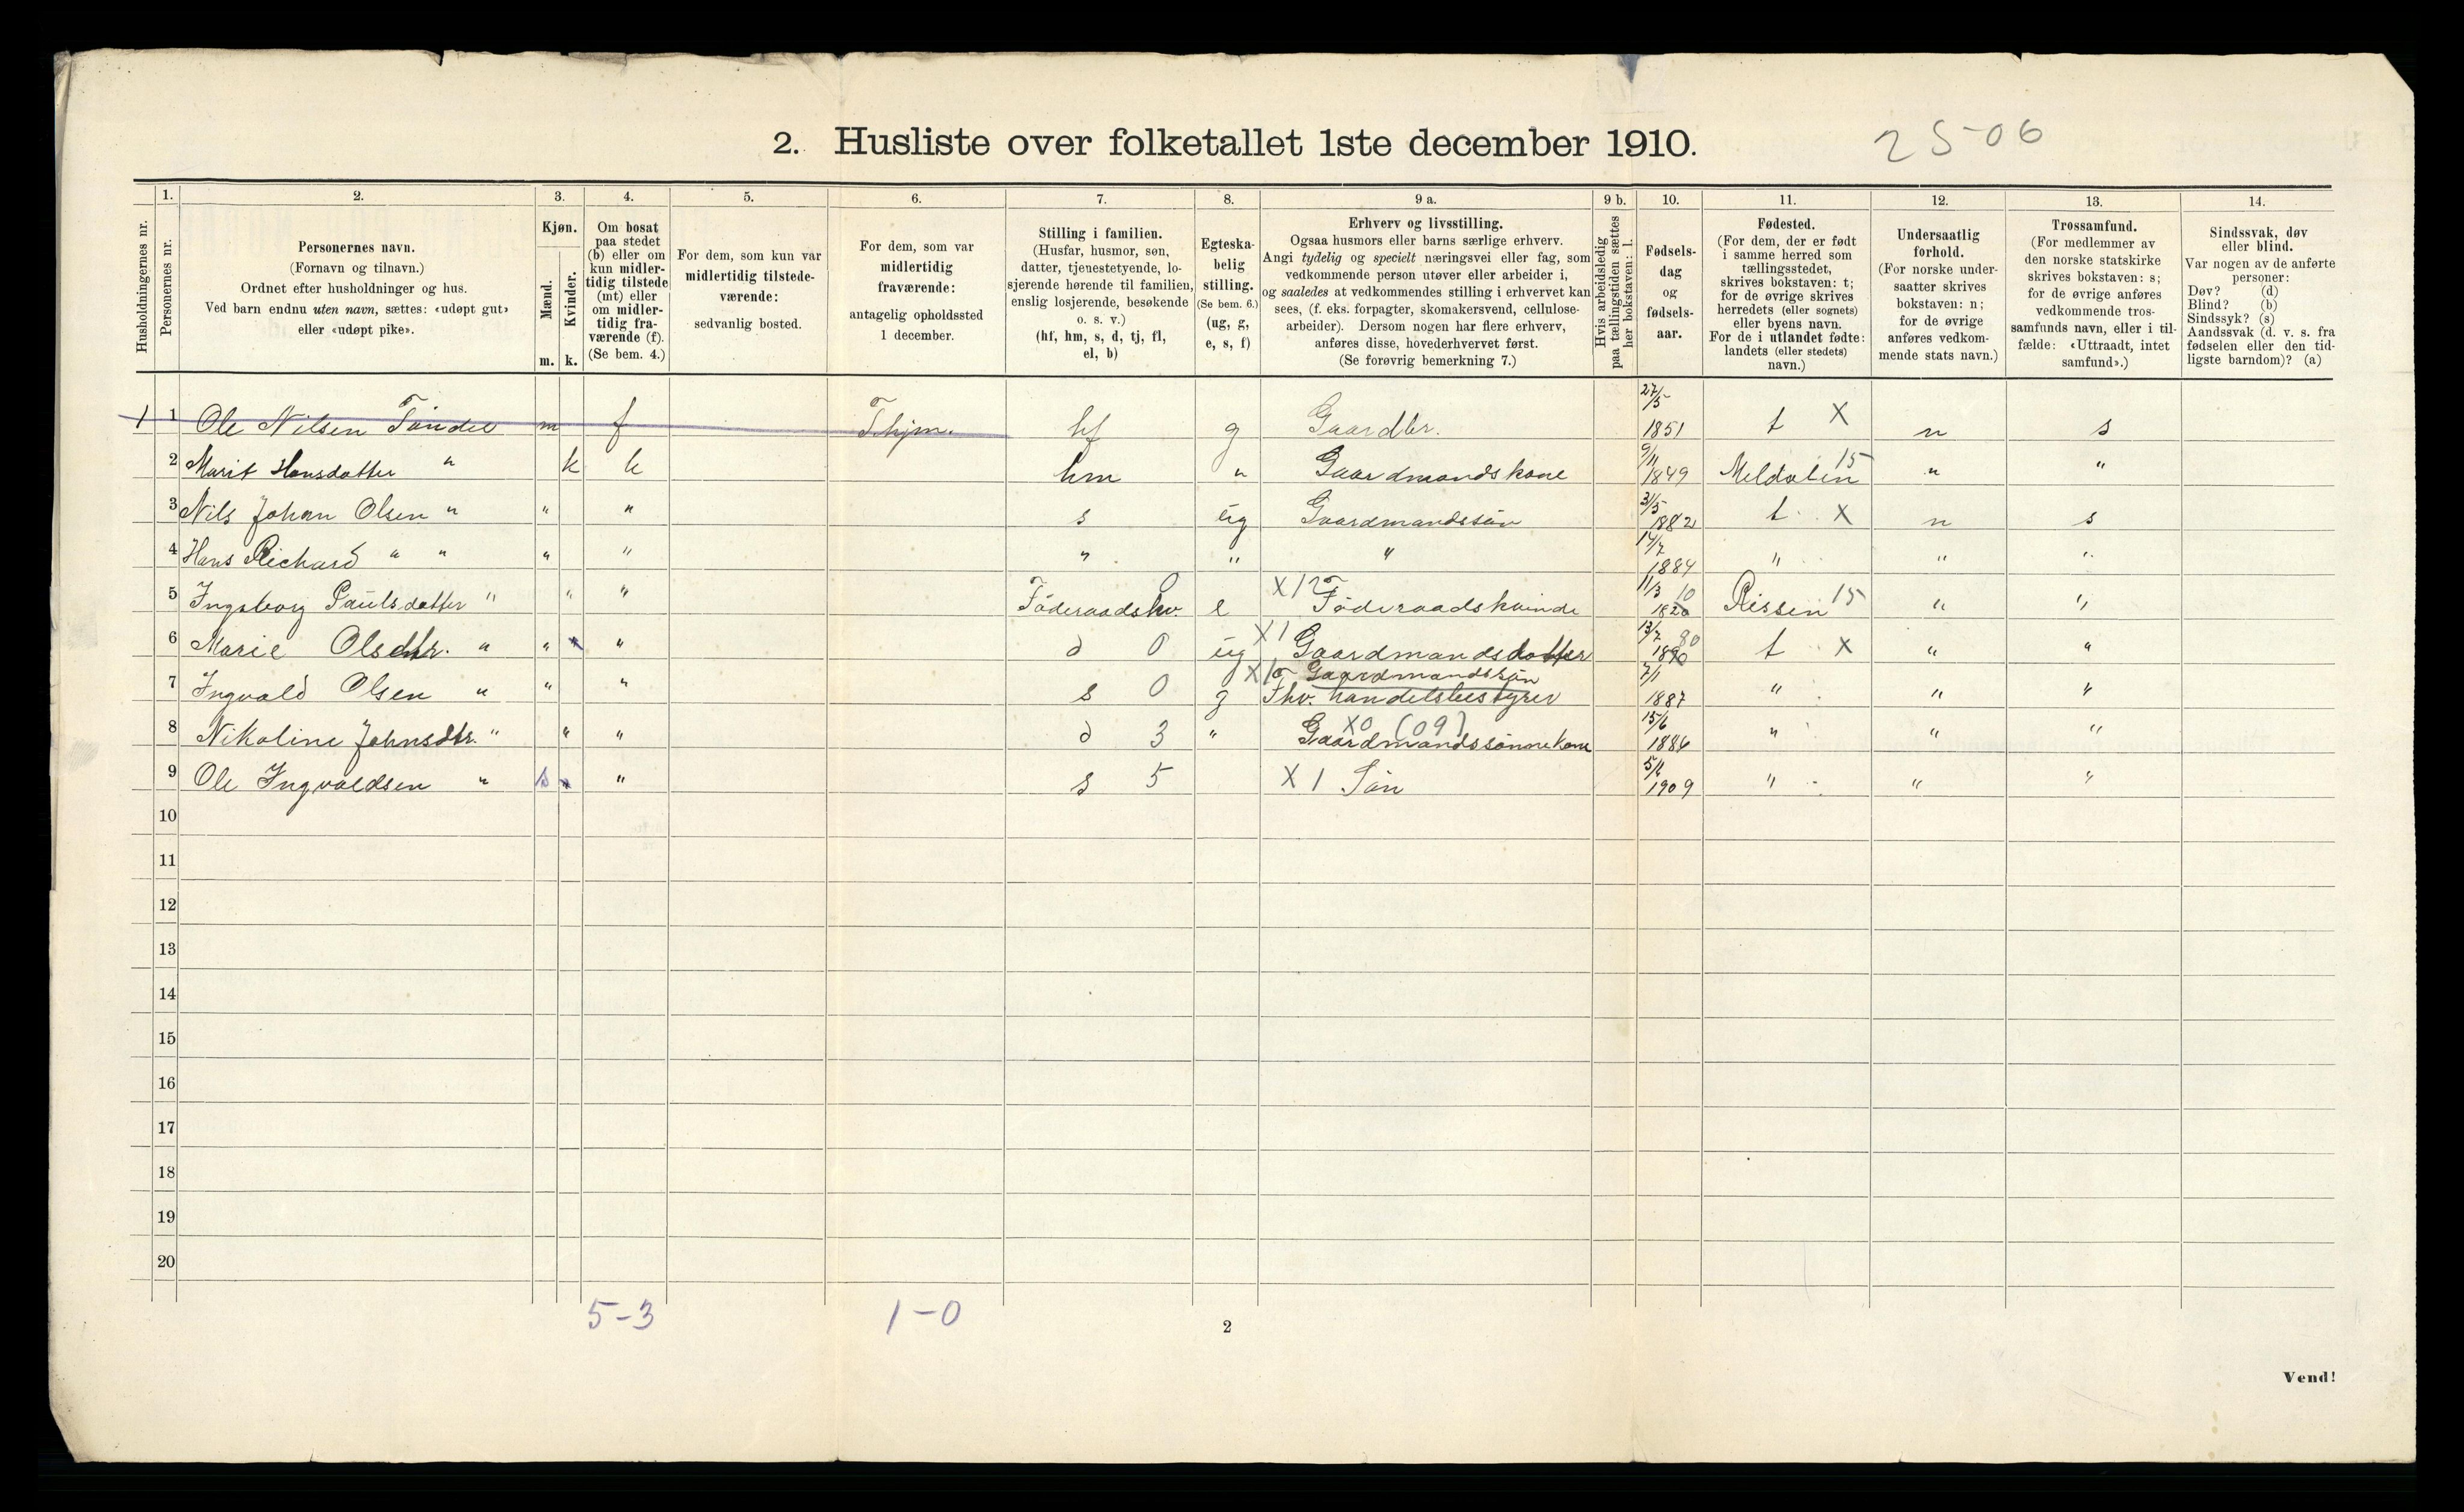 2. Husliste over folketallet 1ste december 1910.
25-06
Husholdningernes nr.
1. Personernes nr.
2. Personernes navn.
(Fornavn og tilnavn.)
Ordnet efter husholdninger og hus.
Ved barn endnu uten navn, sættes: «udøpt gut»
eller «udøpt pike».
3. Kjøn.
Mænd. m.
Kvinder. k.
4. Om bosat
paa stedet
(b) eller om
kun midler-
tidig tilstede
(mt) eller
om midler-
tidig fra-
værende (f).
(Se bem. 4.)
5. For dem, som kun var
midlertidig tilstede-
værende:
sedvanlig bosted.
6. For dem, som var
midlertidig
fraværende:
antagelig opholdssted
1 december.
7. Stilling i familien.
(Husfar, husmor, søn,
datter, tjenestetyende, lo-
sjerende hørende til familien,
enslig losjerende, besøkende
o. s. v.)
(hf, hm, s, d, tj, fl,
el, b)
8. Egteska-
belig
stilling.
(Se bem. 6.)
(ug, g,
e, s, f)
9 a. Erhverv og livsstilling.
Ogsaa husmors eller barns særlige erhverv.
Angi tydelig og specielt næringsvei eller fag, som
vedkommende person utøver eller arbeider i,
og saaledes at vedkommendes stilling i erhvervet kan
sees, (f. eks. forpagter, skomakersvend, cellulose-
arbeider). Dersom nogen har flere erhverv,
anføres disse, hovederhvervet først.
(Se forøvrig bemerkning 7.)
9 b. Hvis arbeidsledig
paa tællingstiden sættes
her bokstaven: l.
10. Fødsels-
dag
og
fødsels-
aar.
11. Fødested.
(For dem, der er født
i samme herred som
tællingsstedet,
skrives bokstaven: t;
for de øvrige skrives
herredets (eller sognets)
eller byens navn.
For de i utlandet fødte:
landets (eller stedets)
navn.)
12. Undersaatlig
forhold.
(For norske under-
saatter skrives
bokstaven: n;
for de øvrige
anføres vedkom-
mende stats navn.)
13. Trossamfund.
(For medlemmer av
den norske statskirke
skrives bokstaven: s;
for de øvrige anføres
vedkommende tros-
samfunds navn, eller i til-
fælde: «Uttraadt, intet
samfund».)
14. Sindssvak, døv
eller blind.
Var nogen av de anførte
personer:
Døv? (d)
Blind? (b)
Sindssyk? (s)
Aandssvak (d. v. s. fra
fødselen eller den tid-
ligste barndom)? (a)
1 1 Ole Nilsen Tøndel m f Thjem. hf g Gaardbr. 27/5 1851 t X n s
2 Marit Hansdatter " k b hm " Gaardmandskone 9/11 1849 Meldalen 15 " "
3 Nils Johan Olsen " " " s ug Gaardmandssøn 31/5 1882 t X n s
4 Hans Richard " " " " " " " 14/7 1884 " " "
5 Ingeborg Paulsdatter " " " Føderaadskv. 0 e X 12 Føderaadskvinde 11/3 1820 10 Rissen 15 " "
6 Marie Olsdtr. " " " " d 0 ug X1 Gaardmandsdatter 13/7 1890 80 t X " "
7 Ingvald Olsen " " " s 0 g X1 Gaardmandssøn
Fhv. handelsbestyrer 7/1 1887 " " "
8 Nikoline Johnsdtr. " " " d 3 " X0 (09) Gaardmandssønnekone 15/6 1886 " " "
9 Ole Ingvaldsen " " " s 5 X 1 Søn 5/6 1909 " " "
10
11
12
13
14
15
16
17
18
19
20
5-3 1-0
2
Vend!